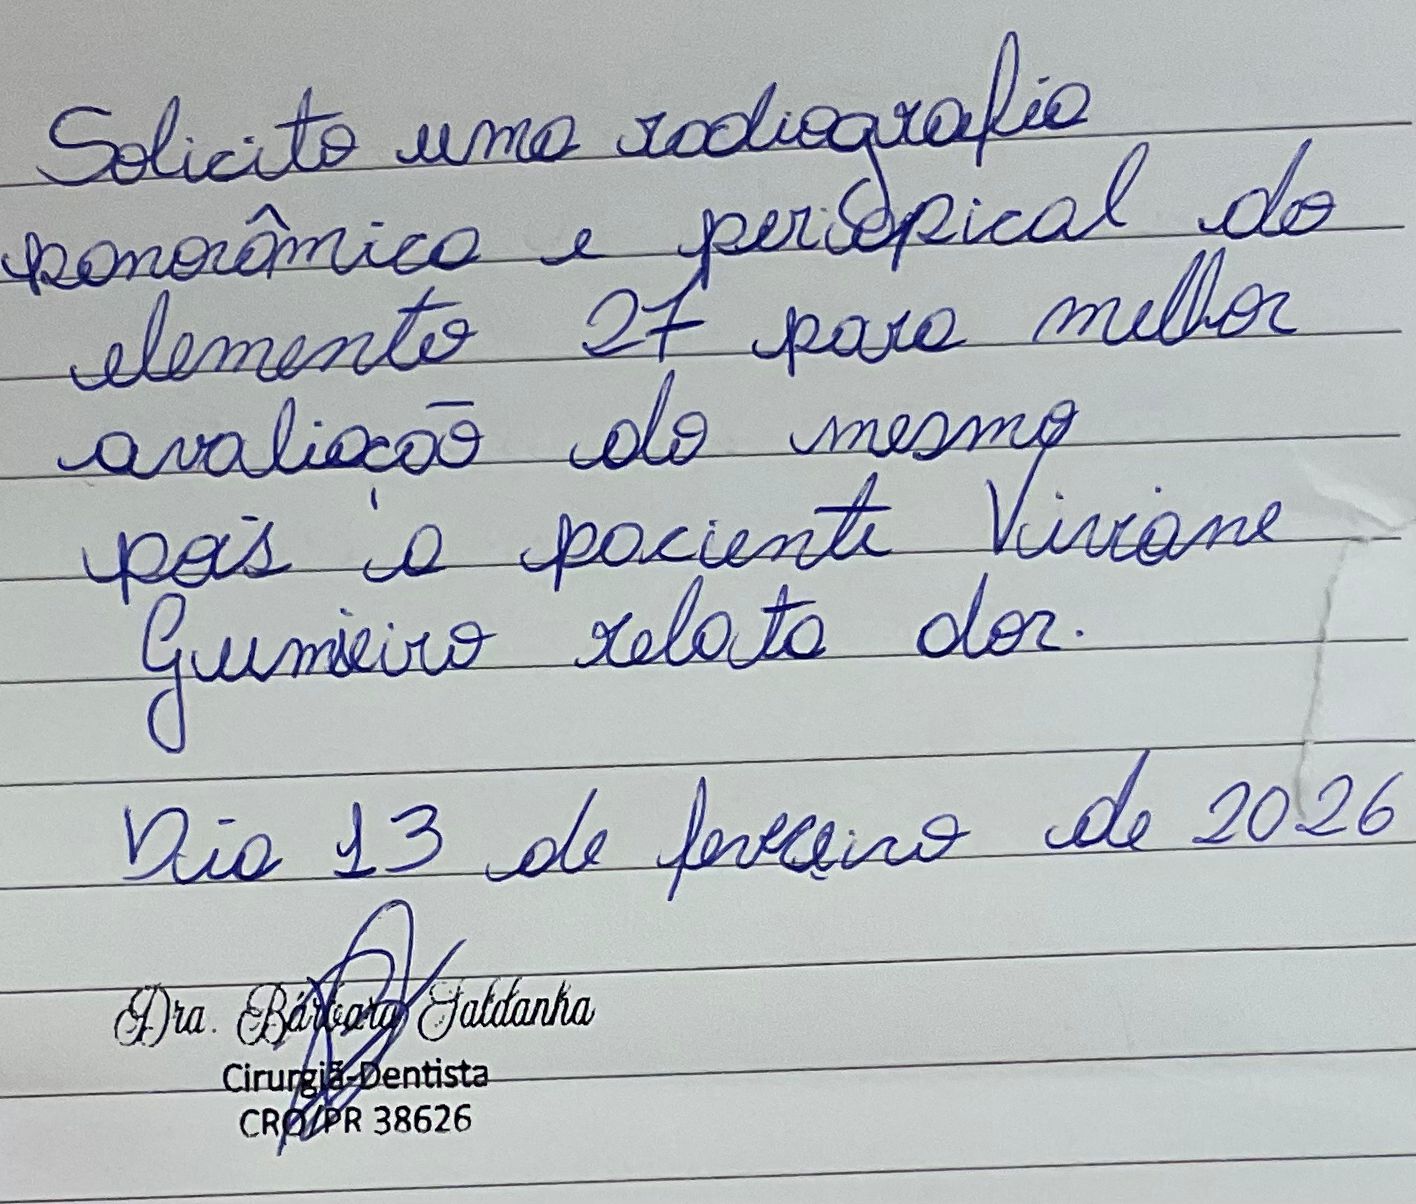 Solicito uma radiografia
panorâmica e periapical do
elemento 27 para melhor
avaliacão do mesmo
pois a paciente Viviane
Gumieiro relata dor.
Dia 13 de fevereiro de 2026
Dra. Bárbara Saldanha
Cirurgiã-Dentista
CRO/PR 38626